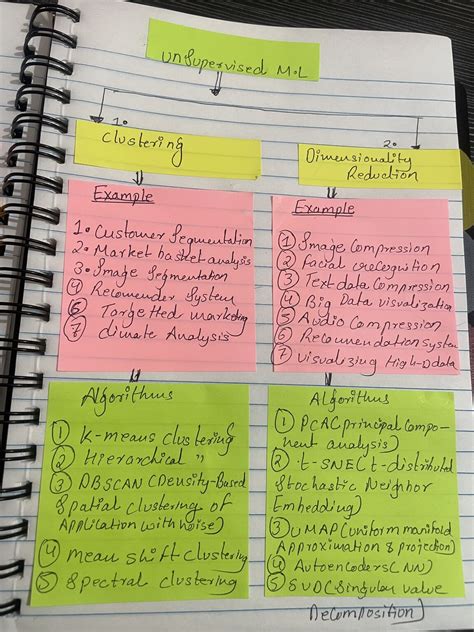 Unsupervised M.L
1.
Clustering
2.
Dimensionality
Reduction
Example
1. Customer Segmentation
2. Market basket analysis
3. Image Segmentation
4 Recomender System
5 Targetted marketing
7 climate Analysis
Example
1 Image Compression
2 Facial recognition
3 Text data Compression
4 Big Data visualization
5 Audio Compression
6 Recomendation system
7 visualizing High-D data
Algorithms
1 K-means clustering
2 Hierarchical "
3 DBSCAN (Density-Based
Spatial clustering of
Application with noise)
4 mean shift clustering
5 Spectral clustering
Algorithms
1 PCA (principal Compo-
nent analysis)
2 t-SNE (t-distributed
Stochastic Neighbor
Embedding)
3 UMAP (uniform manifold
Approximation & projection)
4 Autoencoders (NN)
5 SVD (Singular value
Decomposition)